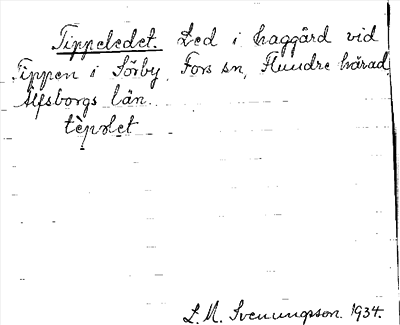 Tippeledet. Led i haggård vid
Tippen i Sörby, Fors sn, Flundre härad,
Älfsborgs län.
L. M. Svenungsson. 1934.